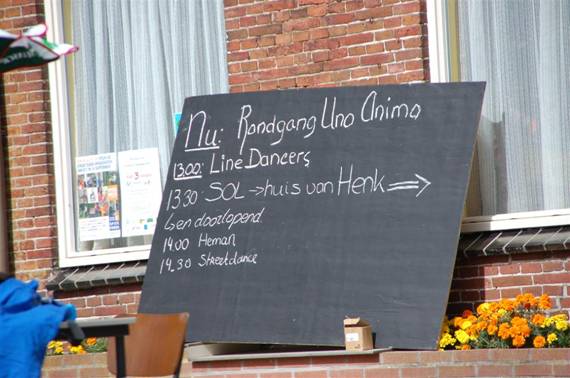 Nu: Rondgang Uno Animo
13.00: Line Dancers
13.30: SOL → huis van Henk ⇒
6en doorlopend
14.00 Heman
14.30 Streetdance